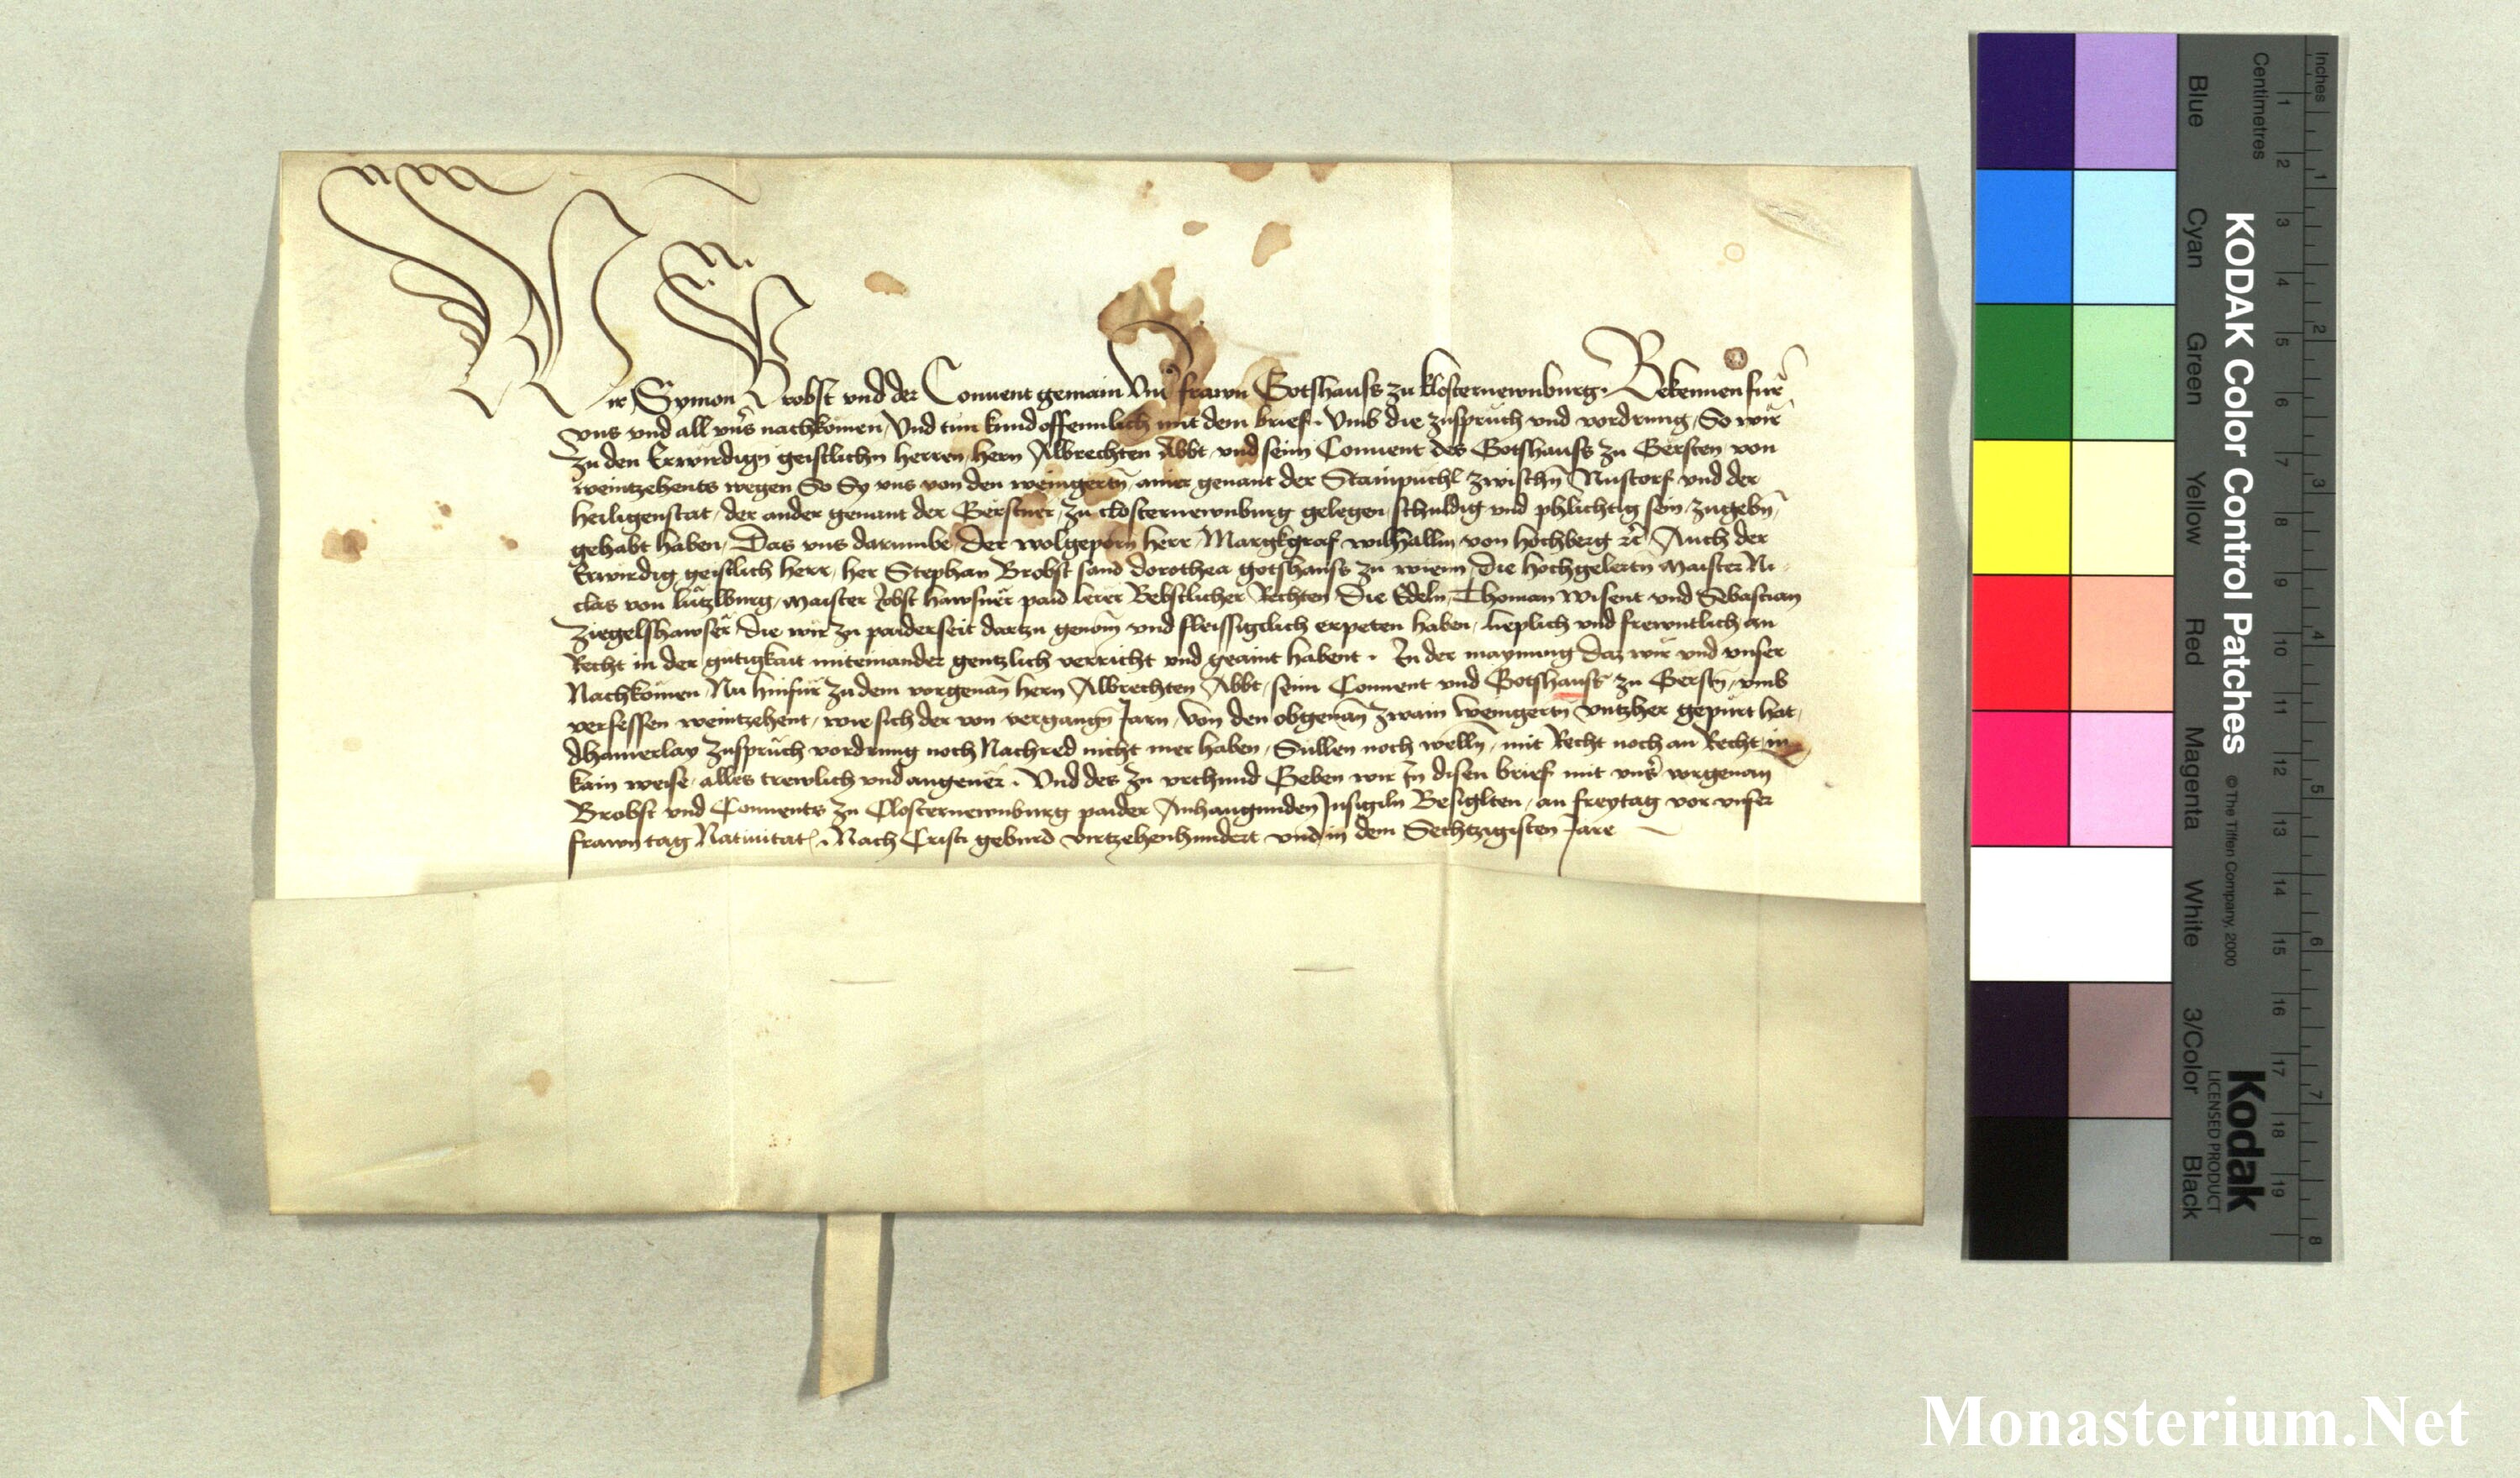 Wir Symon Brobst vnd der Conuent gemain Vnser frawn Gotshauss zu klosternewnburg. Bekennen fur
vns vnd all vnser nachkomen, Vnd tun kund offennlich mit dem brief. Vmb die zuspruch vnd vordrung, So wir
zu den Erwirdign geistlichn herren, hern Albrechten Abbt, vnd seinn Conuent des Gotshauss zu Gersten, von
weintzehents wegen So Sy vns von den weingertn, ainer genant der Stainpuchl zwischn Nustorf vnd der
heiligenstat, der ander genant der Gerstner, zu closternewnburg gelegen, schuldig vnd phlichtig sein, zugebn,
gehabt haben, Das vns darumbe, Der wolgeporn herr, Margkgraf wilhallm, von hochberg etc, Auch der
Erwirdig, geistlich herr, her Stephan Brobst sand dorothea gotshauss zu wienn, Die hochgelertn maister Ni-
clas von lutzlburg, maister Jobst hawsner paid lerer Bebstlicher Rechten, Die Edeln, Thoman wisent vnd Sebastian
Ziegelshawser, die wir zu paiderseit dartzu genom vnd fleissigclich erpeten haben, lieplich vnd frewntlich an
Recht in der gutigkait miteinander gentzlich verricht vnd geaint habent. In der maynung, daz wir vnd vnser
Nachkomen, Nu hinfur zu dem vorgenan hern Albrechten Abbt, seinn Conuent vnd Gotshauss zu Gerstn, vmb
versessen weintzehent, wie sich der von vergangn Jarn, von den obgenan zwain weingertn vntzher gepurt hat,
dhainerlay zuspruch vordrung noch Nachred nicht mer haben, Sullen noch welln, mit Recht noch an Recht, in
kain weise, alles trewlich vnd angeuer. Vnd des zu vrchund Geben wir In disen brief mit vnser vorgenan
Brobst vnd Conuents zu Closternewnburg paider Anhangunden Insigiln Besiglten, an freytag vor vnser
frawn tag Natiuitatis. Nach Cristi geburd virtzehenhundert vnd in dem Sechtzigisten Jare
KODAK Color Control Patches
© The Tiffen Company, 2000
Kodak
LICENSED PRODUCT
Blue Cyan Green Yellow Red Magenta White 3/Color Black
Centimetres 1 2 3 4 5 6 7 8 9 10 11 12 13 14 15 16 17 18 19
Inches 1 2 3 4 5 6 7 8
Monasterium.Net